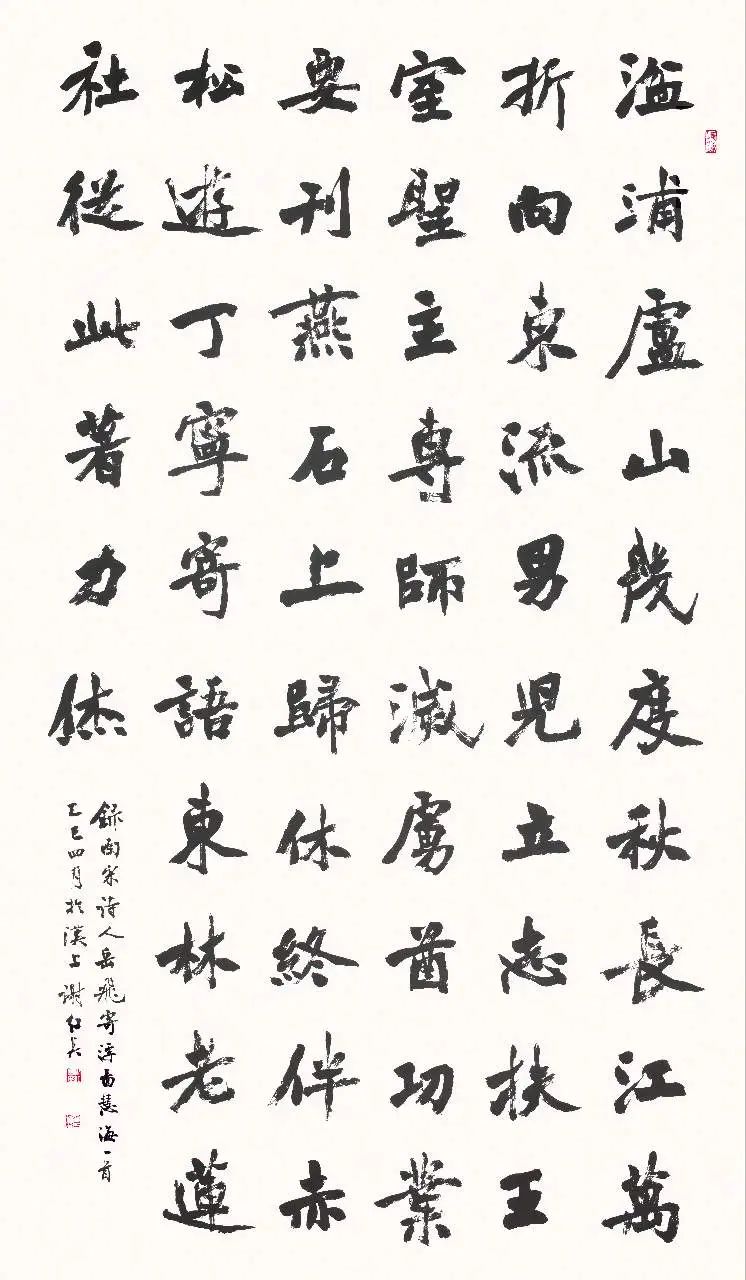 湓浦廬山幾度秋長江萬
折向東流男兒立志扶王
室聖主專師滅虜酋功業
要刊燕石上歸休終伴赤
松遊丁寧寄語東林老蓮
社從此著力修
錄南宋詩人岳飛寄浮屠慧海一首
乙巳四月於漢上謝紅